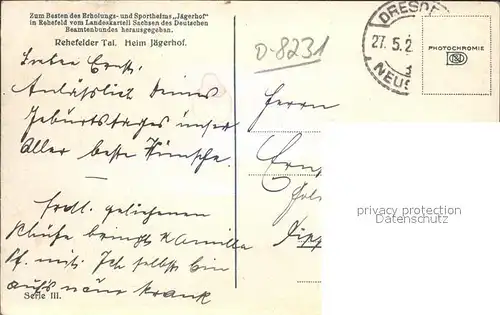 Zum Besten des Erholungs- und Sportheims „Jägerhof"
in Rehefeld vom Landeskartell Sachsen des Deutschen
Beamtenbundes herausgegeben.
Rehefelder Tal. Heim Jägerhof.
D-8231
DRESDE
27.5.2
NEUS
PHOTOCHROMIE
Lieber Ernst.
Anläßlich Deines
Geburtstages unser
Aller beste Wünsche.
geliehenen
bringt Kamilla
mit. Ich selbst bin
aufs neue krank
Serie III.
Herrn
Dipp
privacy protection
Datenschutz